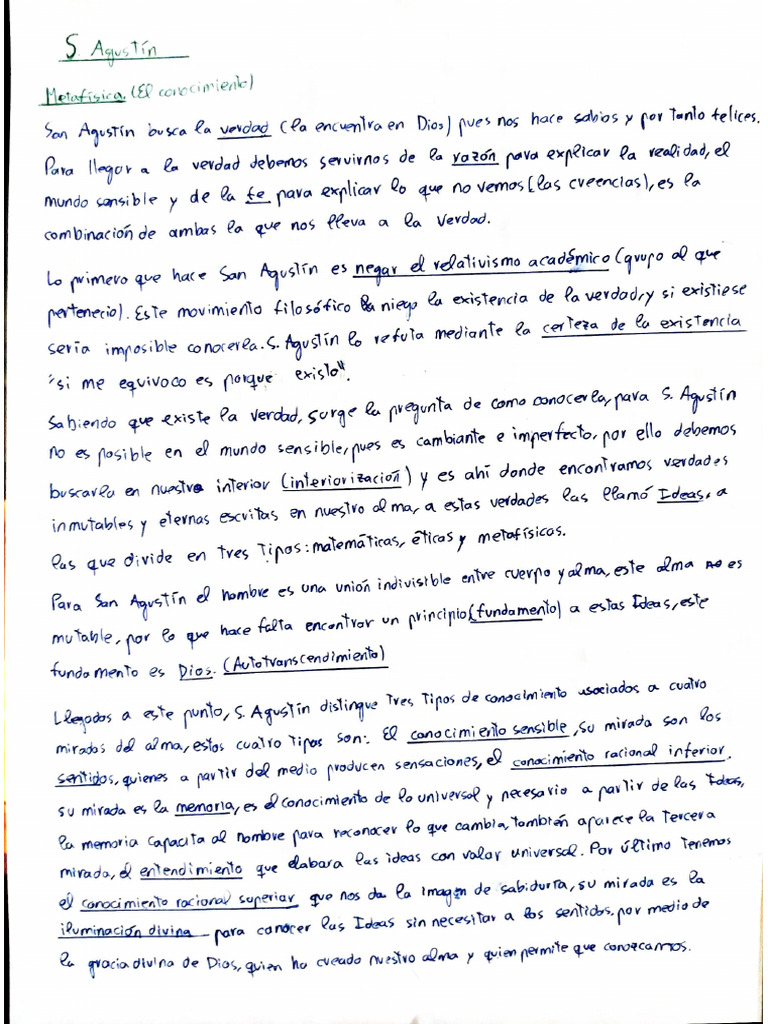 S. Agustín
Metafísica. (El conocimiento)
San Agustín busca la verdad (la encuentra en Dios) pues nos hace sabios y por tanto felices.
Para llegar a la verdad debemos servirnos de la razón para explicar la realidad, el
mundo sensible y de la fe para explicar lo que no vemos (las creencias), es la
combinación de ambas la que nos lleva a la verdad.
Lo primero que hace San Agustín es negar el relativismo académico (grupo al que
pertenecio). Este movimiento filosófico niega la existencia de la verdad, y si existiese
seria imposible conocerla. S. Agustín lo refuta mediante la certeza de la existencia
"si me equivoco es porque existo".
Sabiendo que existe la verdad, surge la pregunta de como conocerla, para S. Agustín
no es posible en el mundo sensible, pues es cambiante e imperfecto, por ello debemos
buscarla en nuestro interior (interiorización) y es ahí donde encontramos verdades
inmutables y eternas escritas en nuestro alma, a estas verdades las llamó Ideas, a
las que divide en tres tipos: matemáticas, éticas y metafísicas.
Para San Agustín el hombre es una unión indivisible entre cuerpo y alma, este alma es
mutable, por lo que hace falta encontrar un principio (fundamento) a estas Ideas, este
fundamento es Dios. (Autotranscendimiento)
Llegados a este punto, S. Agustín distingue tres tipos de conocimiento asociados a cuatro
miradas del alma, estos cuatro tipos son: El conocimiento sensible, su mirada son los
sentidos, quienes a partir del medio producen sensaciones, el conocimiento racional inferior,
su mirada es la memoria, es el conocimiento de lo universal y necesario a partir de las Ideas,
la memoria capacita al hombre para reconocer lo que cambia, también aparece la tercera
mirada, el entendimiento que elabora las ideas con valor universal. Por último tenemos
el conocimiento racional superior que nos da la imagen de sabiduría, su mirada es la
iluminación divina para conocer las Ideas sin necesitar a los sentidos, por medio de
la gracia divina de Dios, quien ha creado nuestro alma y quien permite que conozcamos.